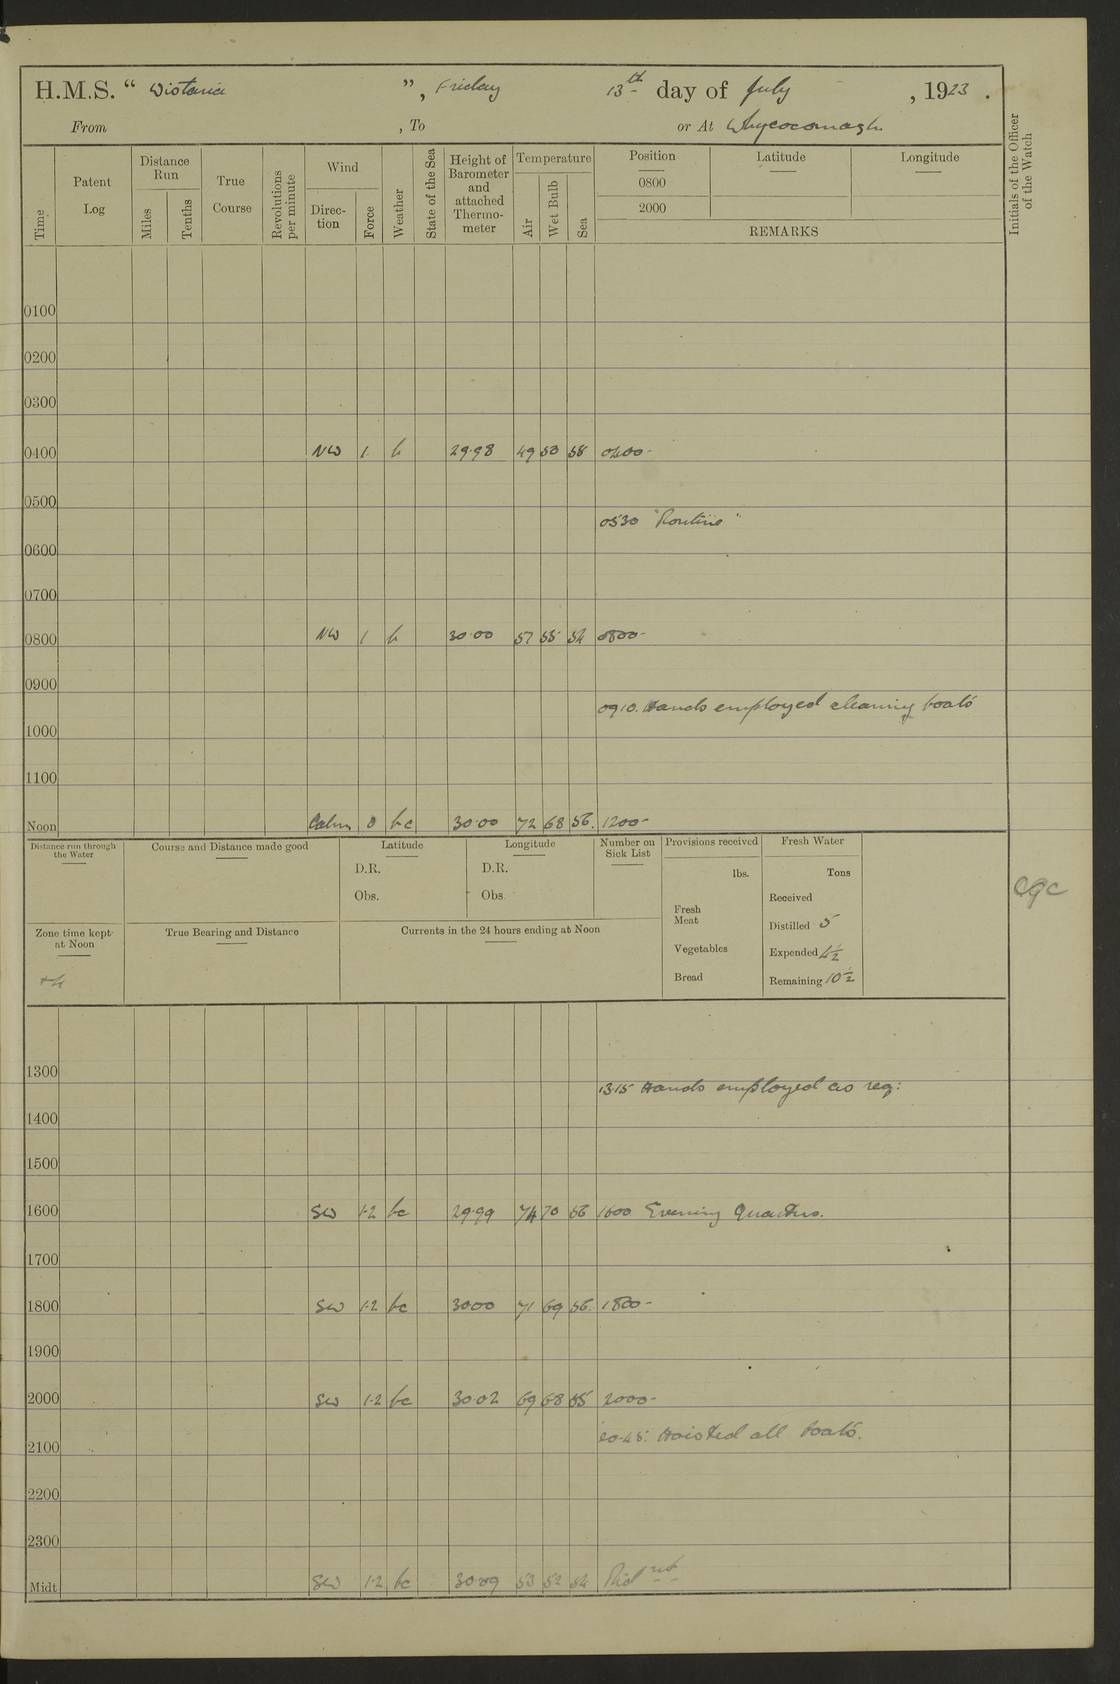 H.M.S. “ Wistaria ”, Friday 13th day of July, 1923.
From , To or At Whycocomagh
Time
Patent Log
Distance Run
Miles
Tenths
True Course
Revolutions per minute
Wind
Direc-tion
Force
Weather
State of the Sea
Height of Barometer and attached Thermo-meter
Temperature
Air
Wet Bulb
Sea
Position Latitude Longitude
0800
2000
REMARKS
Initials of the Officer of the Watch
0100
0200
0300
0400 NW 1 b 29.98 49 50 58 0400-
0500
0530 "Routine"
0600
0700
0800 NW 1 b 30.00 57 55 54 0800-
0900
0910. Hands employed cleaning boats
1000
1100
Noon Calm 0 bc 30.00 72 68 56. 1200-
Distance run through the Water
Course and Distance made good
Latitude
D.R.
Obs.
Longitude
D.R.
Obs.
Number on Sick List
Provisions received
lbs.
Fresh Meat
Vegetables
Bread
Fresh Water
Tons
Received
Distilled 5
Expended 4½
Remaining 10½
CGC
Zone time kept at Noon
+4
True Bearing and Distance
Currents in the 24 hours ending at Noon
1300
1315 Hands employed as req:
1400
1500
1600 SW 1-2 bc 29.99 74 70 56 1600 Evening Quarters.
1700
1800 SW 1-2 bc 3000 71 69 56. 1800-
1900
2000 SW 1-2 bc 30.02 69 68 55 2000-
20.45. Hoisted all boats.
2100
2200
2300
Midt SW 1-2 bc 30.09 53 52 54 Midnt